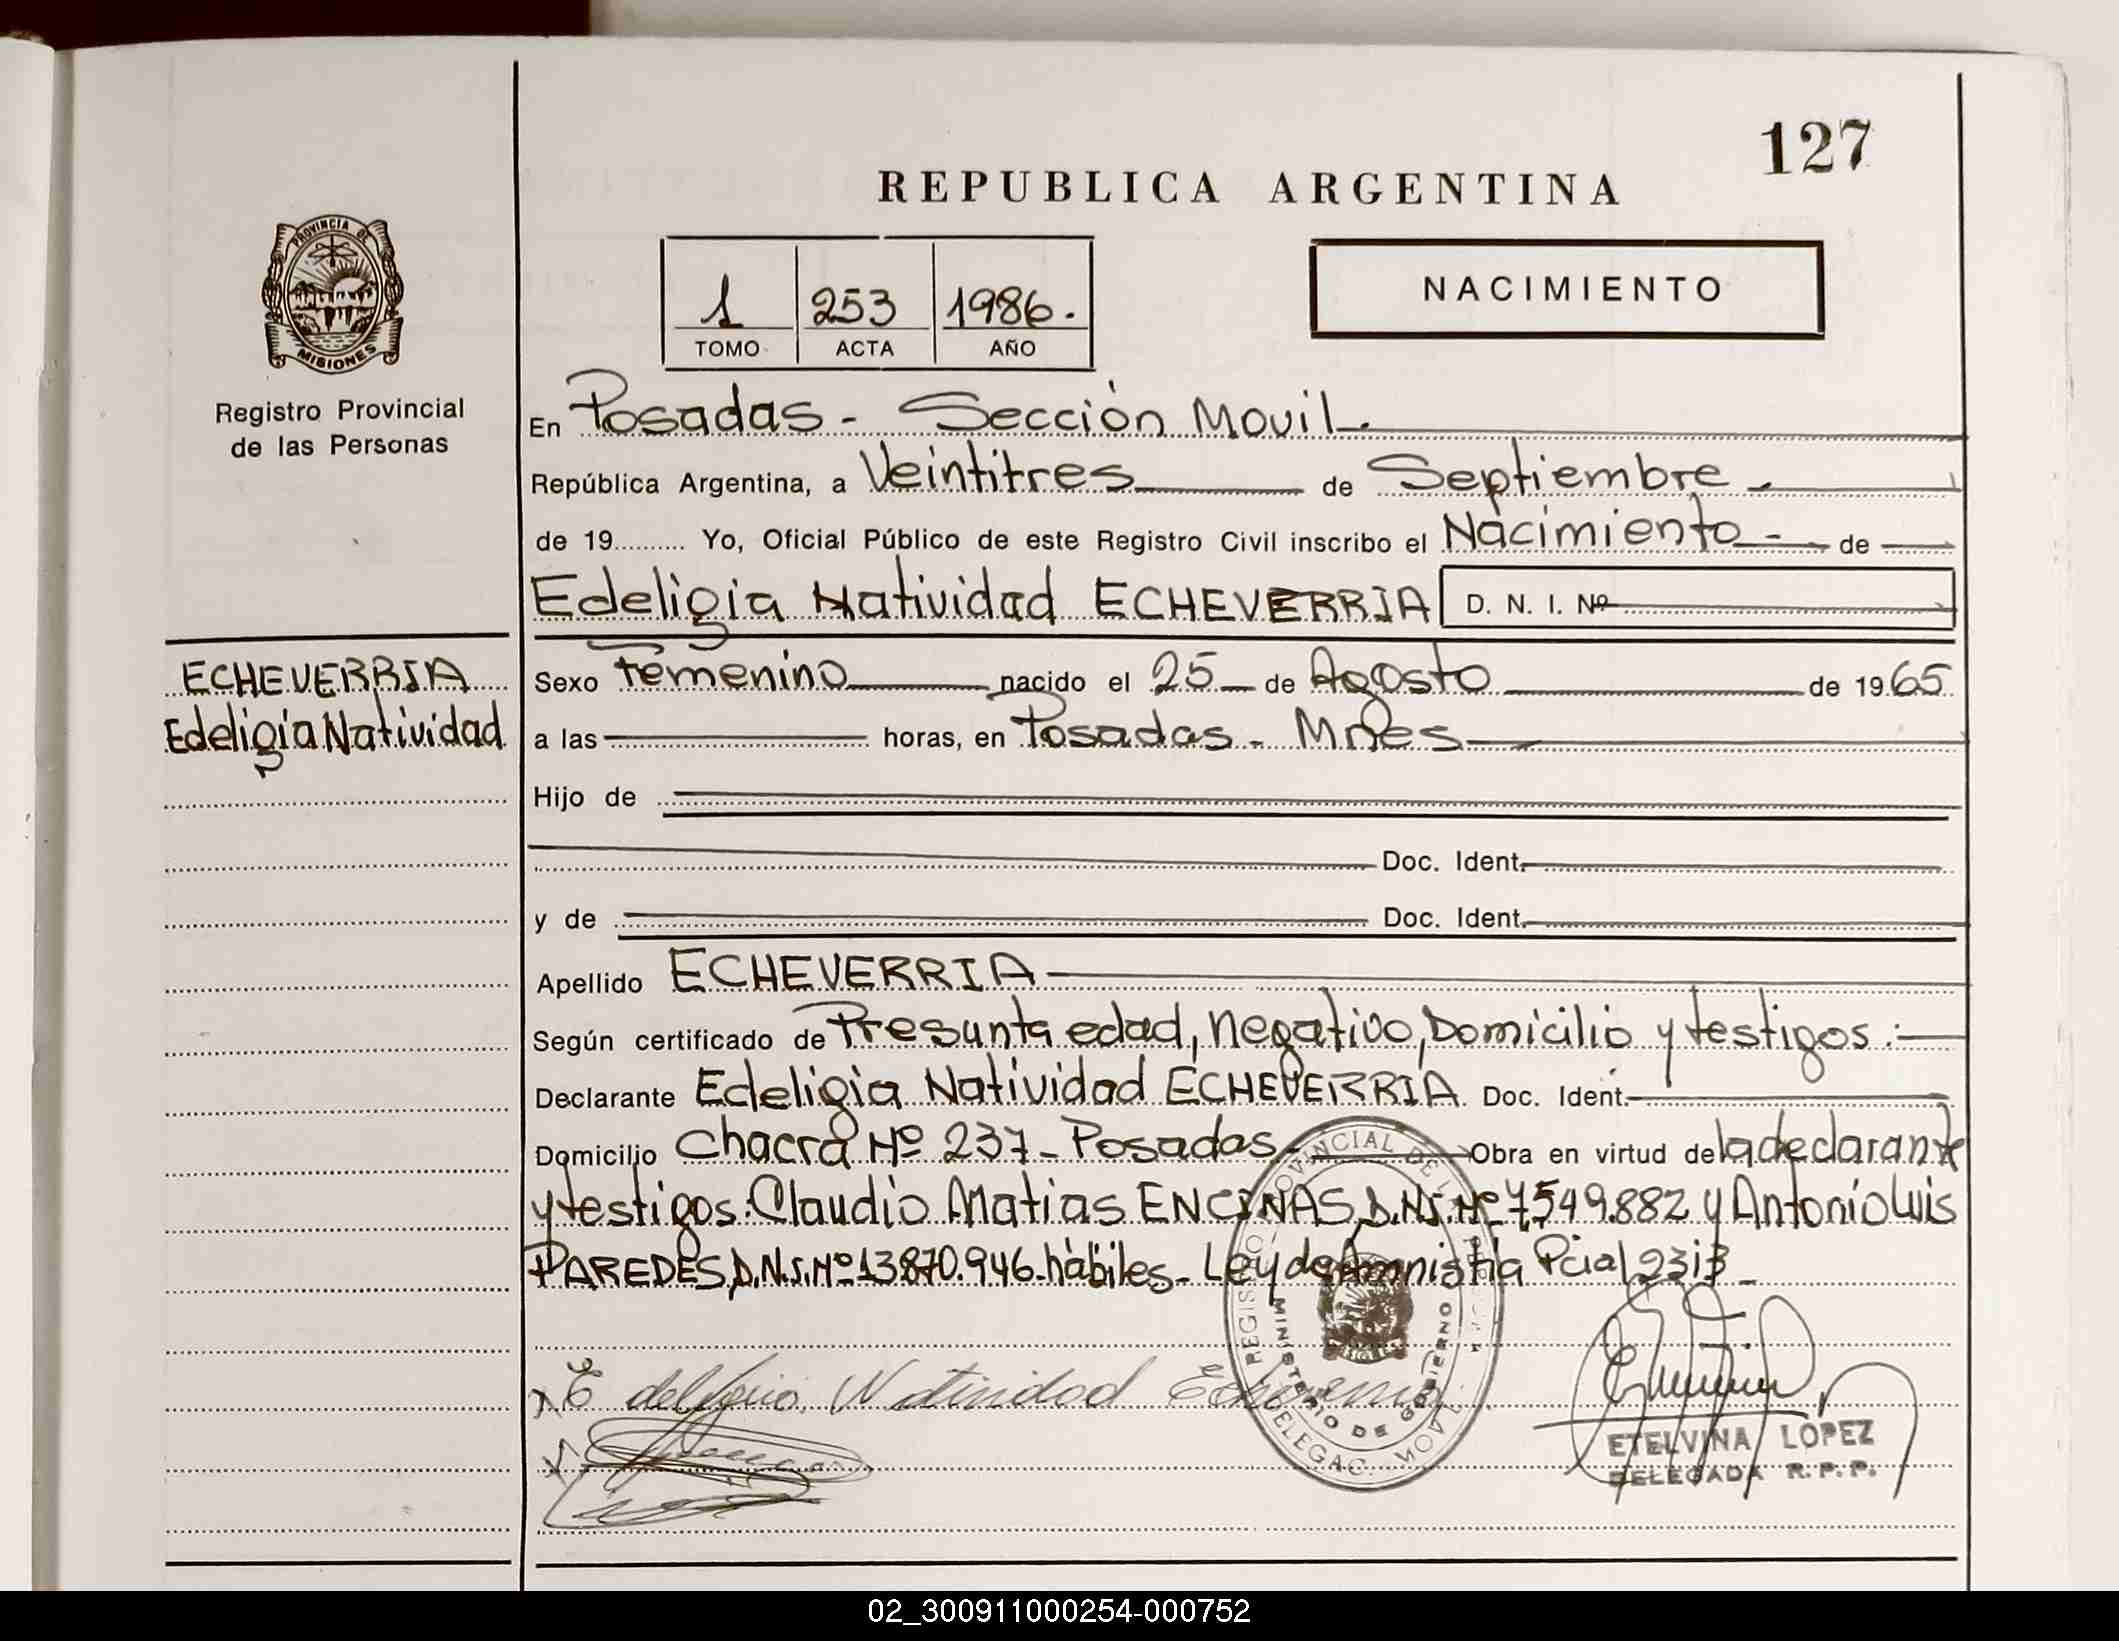 127
REPUBLICA ARGENTINA
PROVINCIA DE
MISIONES
Registro Provincial
de las Personas
1 253 1986.
TOMO ACTA AÑO
NACIMIENTO
En Posadas - Sección Movil.
República Argentina, a Veintitres de Septiembre
de 19.......... Yo, Oficial Público de este Registro Civil inscribo el Nacimiento - de
Edeligia Natividad ECHEVERRIA D. N. I. Nº
ECHEVERRIA
Edeligia Natividad
Sexo Femenino nacido el 25 de Agosto de 1965
a las horas, en Posadas - Mnes
Hijo de
Doc. Ident.
y de Doc. Ident.
Apellido ECHEVERRIA
Según certificado de Presunta edad, negativo, Domicilio y testigos :
Declarante Edeligia Natividad ECHEVERRIA Doc. Ident.
Domicilio Chacra Nº 237 - Posadas Obra en virtud de la declarante
y testigos: Claudio Matias ENCINAS, D.N.I. Nº 7549.882 y Antonio Luis
PAREDES, D.N.I. Nº 13.870.946 - hábiles - Ley de Amnistía Pcial 2313 -
REGISTRO PROVINCIAL DE LAS PERSONAS
MINISTERIO DE GOBIERNO
DELEGAC. MOVIL
Edeligia Natividad Echeverria
ETELVINA LOPEZ
DELEGADA R.P.P.
02_300911000254-000752